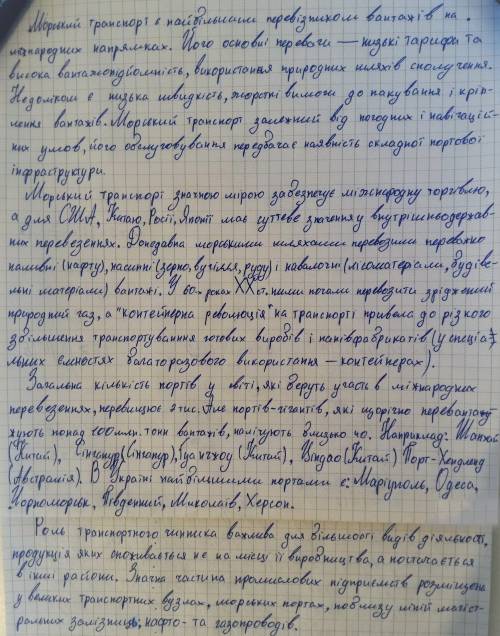 Морський транспорт є найбільшим перевізником вантажів на
міжнародних напрямках. Його основні переваги — низькі тарифи та
висока вантажопідйомність, використання природних шляхів сполучення.
Недоліком є низька швидкість, жорсткі вимоги до пакування і кріп-
лення вантажів. Морський транспорт залежний від погодних і навігацій-
них умов, його обслуговування передбачає наявність складної портової
інфраструктури.
Морський транспорт значною мірою забезпечує міжнародну торгівлю,
а для США, Китаю, Росії, Японії має суттєве значення у внутрішньодержав-
них перевезеннях. Донедавна морськими шляхами перевозили переважно
наливні (нафту), насипні (зерно, вугілля, руду) і навалочні (лісоматеріали, будіве-
льні матеріали) вантажі. У 60-роках XX ст. ними почали перевозити зріджений
природний газ, а "контейнерна революція" на транспорті привела до різкого
збільшення транспортування готових виробів і напівфабрикатів (у спеціа-
льних ємностях багаторазового використання — контейнерах).
Загальна кількість портів у світі, які беруть участь в міжнародних
перевезеннях, перевищує 2 тис. Але портів-гігантів, які щорічно перевантажу-
жують понад 100 млн. тонн вантажів, налічують близько 40. Наприклад: Шанхай
(Китай), Сінгапур (Сінгапур), Гуанчжоу (Китай), Ціндао (Китай) Порт-Хедленд
(Австралія). В Україні найбільшими портами є: Маріуполь, Одеса,
Чорноморськ, Південний, Миколаїв, Херсон.
Роль транспортного чинника важлива для більшості видів діяльності,
продукція яких споживається не на місці її виробництва, а постачається
в інші райони. Значна частина промислових підприємств розміщена
у великих транспортних вузлах, морських портах, поблизу ліній магіст-
ральних залізниць, нафто- та газопроводів.